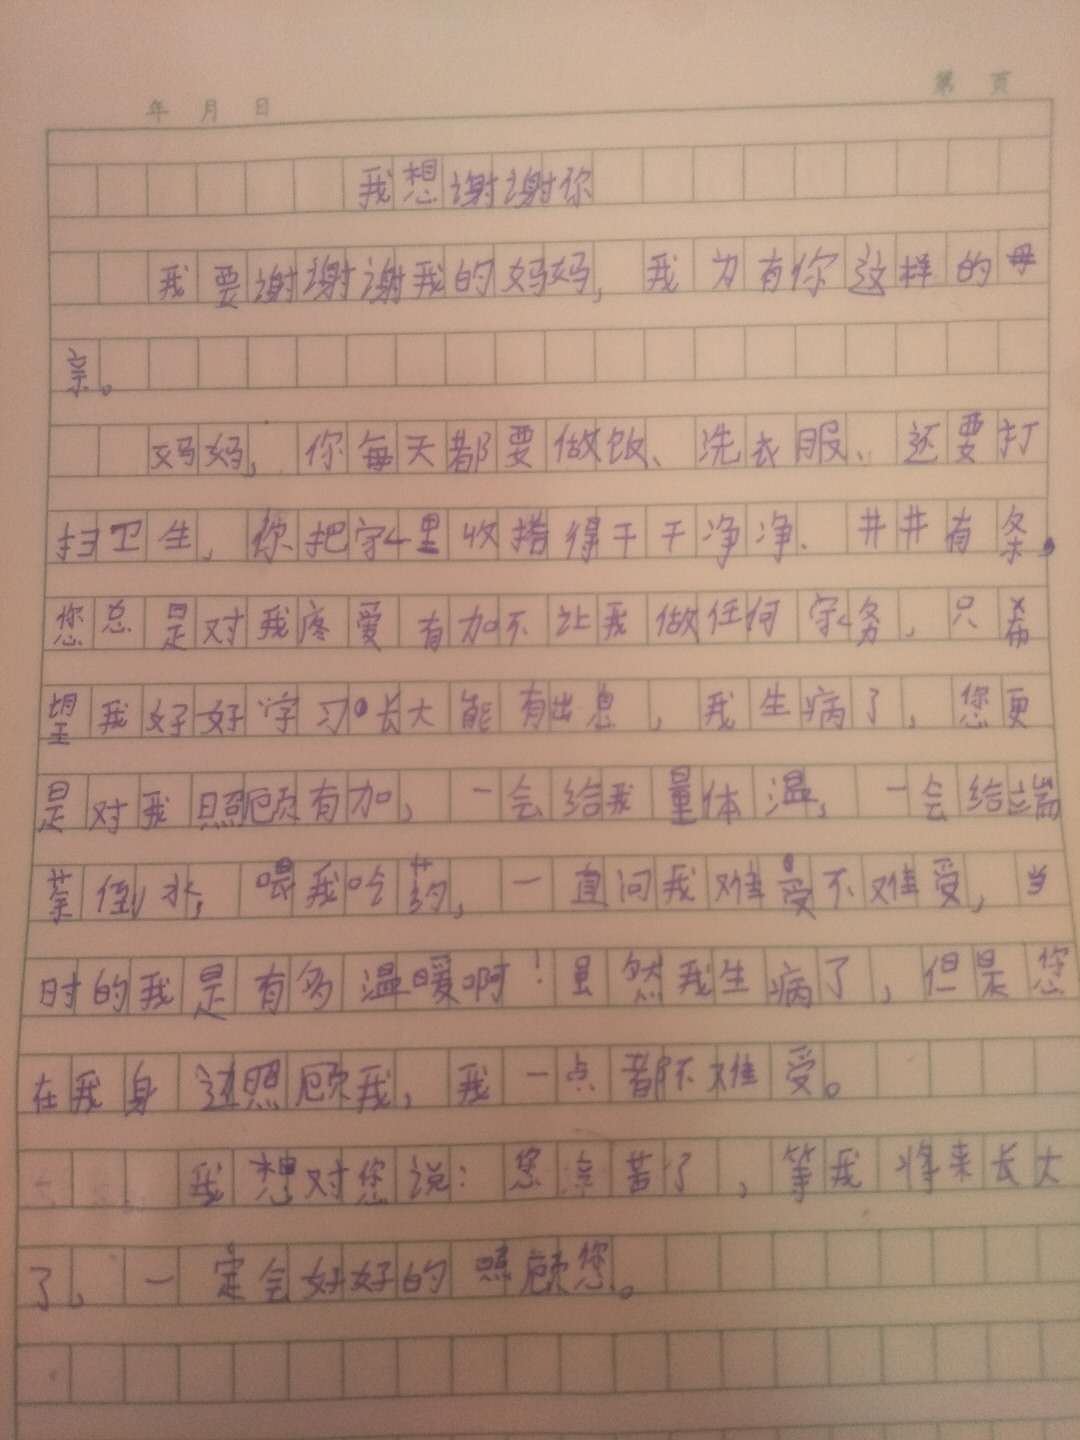 年 月 日 第 页
我想谢谢你
我要谢谢谢我的妈妈，我为有你这样的母
亲。
妈妈，你每天都要做饭、洗衣服、还要打
扫卫生，你把家里收搭得干干净净、井井有条，
您总是对我疼爱有加不让我做任何家务，只希
望我好好学习长大能有出息，我生病了，您更
是对我照顾有加，一会给我量体温，一会给端
茶倒水，喂我吃药，一直问我难受不难受，当
时的我是有多温暖啊！虽然我生病了，但是您
在我身边照顾我，我一点都不难受。
我想对您说：您亲苦了，等我将来长大
了，一定会好好的照顾您。